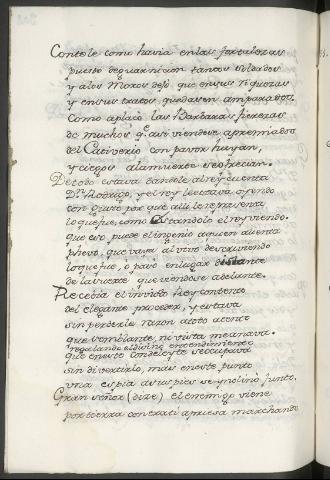 Contole como havia en las fortalezas
puesto de guarnicion tantos soldados
y a los Moros dejo que en sus
y en sus tratos, quedasen amparados.
Como aplacò las Barbaras fierezas
de muchos q.e assi viendose apremiados
del Cativerio con pavor huyan,
y ciegos a la muerte se ofrecian.
De todo estava dandole al rey cuenta
D.n Rodrigo, y el rey le estava oyendo
con gusto por que alli le representa
lo que fue, como estandolo el rey viendo.
que esto puede el ingenio a quien alienta
Phevo, que vaya al vivo descriviendo
lo que fue, ò pasò en lugar distante
de la suerte que viendose adelante.
Recibia el invicto Rey contento
del elegante proceder, y estava
sin perderle razon atoto atento
que semblante, ni vista meanava.
regalandole el divino entendimiento
que en este con deleyte se ocupava
sin divertirlo, mas en este punto
una espia a sus pies se inclinò junto.
Gran señor (dize) el enemigo viene
por esta tierra con exati apriesa marchando